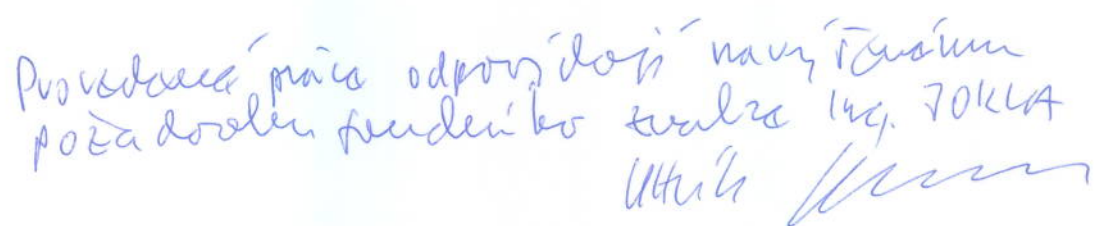 Provedené práce odpovídají navýšenému
požadavku soudního znalce Ing. JOKLA